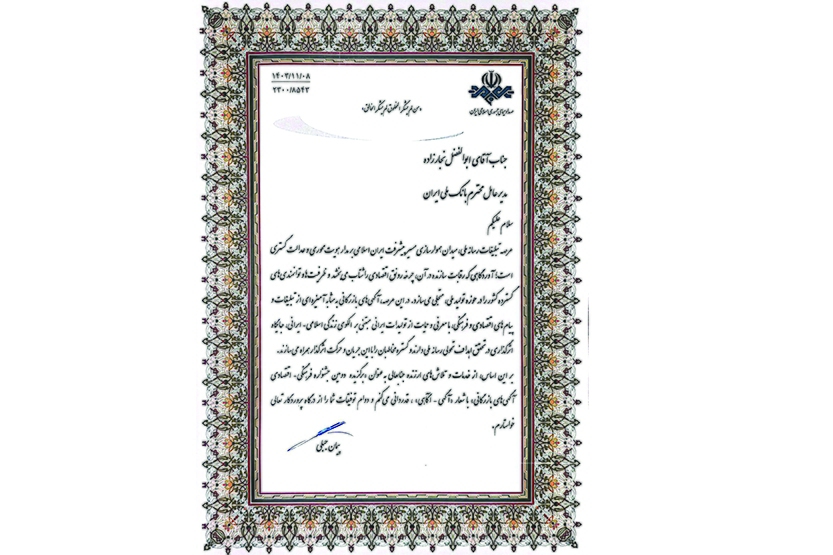 ۱۴۰۳/۱۱/۰۸
۲۳۰۰/۸۵۴۳
صدا و سیمای جمهوری اسلامی ایران
«من لم یشکر المخلوق لم یشکر الخالق»
جناب آقای ابوالفضل نجارزاده
مدیرعامل محترم بانک ملی ایران
سلام علیکم
عرصه تبلیغات رسانه ملی، میدان هموارسازی مسیر پیشرفت ایران اسلامی بر مدار هویت محوری و عدالت گستری
است؛ آوردگاهی که رقابت سازنده در آن، چرخه رونق اقتصادی را شتاب می بخشد و ظرفیت ها و توانمندی های
گسترده کشور را در حوزه تولید ملی، متجلی می سازد. در این عرصه، آگهی های بازرگانی به مثابه آمیزه ای از تبلیغات و
پیام های اقتصادی و فرهنگی، با معرفی و حمایت از تولیدات ایرانی مبتنی بر الگوی زندگی اسلامی - ایرانی، جایگاه
اثرگذاری در تحقق اهداف تحولی رسانه ملی دارند و گستره مخاطبان را با این جریان و حرکت اثرگذار همراه می سازند.
بر این اساس، از خدمات و تلاش های ارزنده جنابعالی به عنوان «برگزیده دومین جشنواره فرهنگی - اقتصادی
آگهی های بازرگانی» با شعار «آگهی - آگاهی» ، قدردانی می کنم و دوام توفیقات شما را از درگاه پروردگار تعالی
خواستارم.
پیمان جبلی